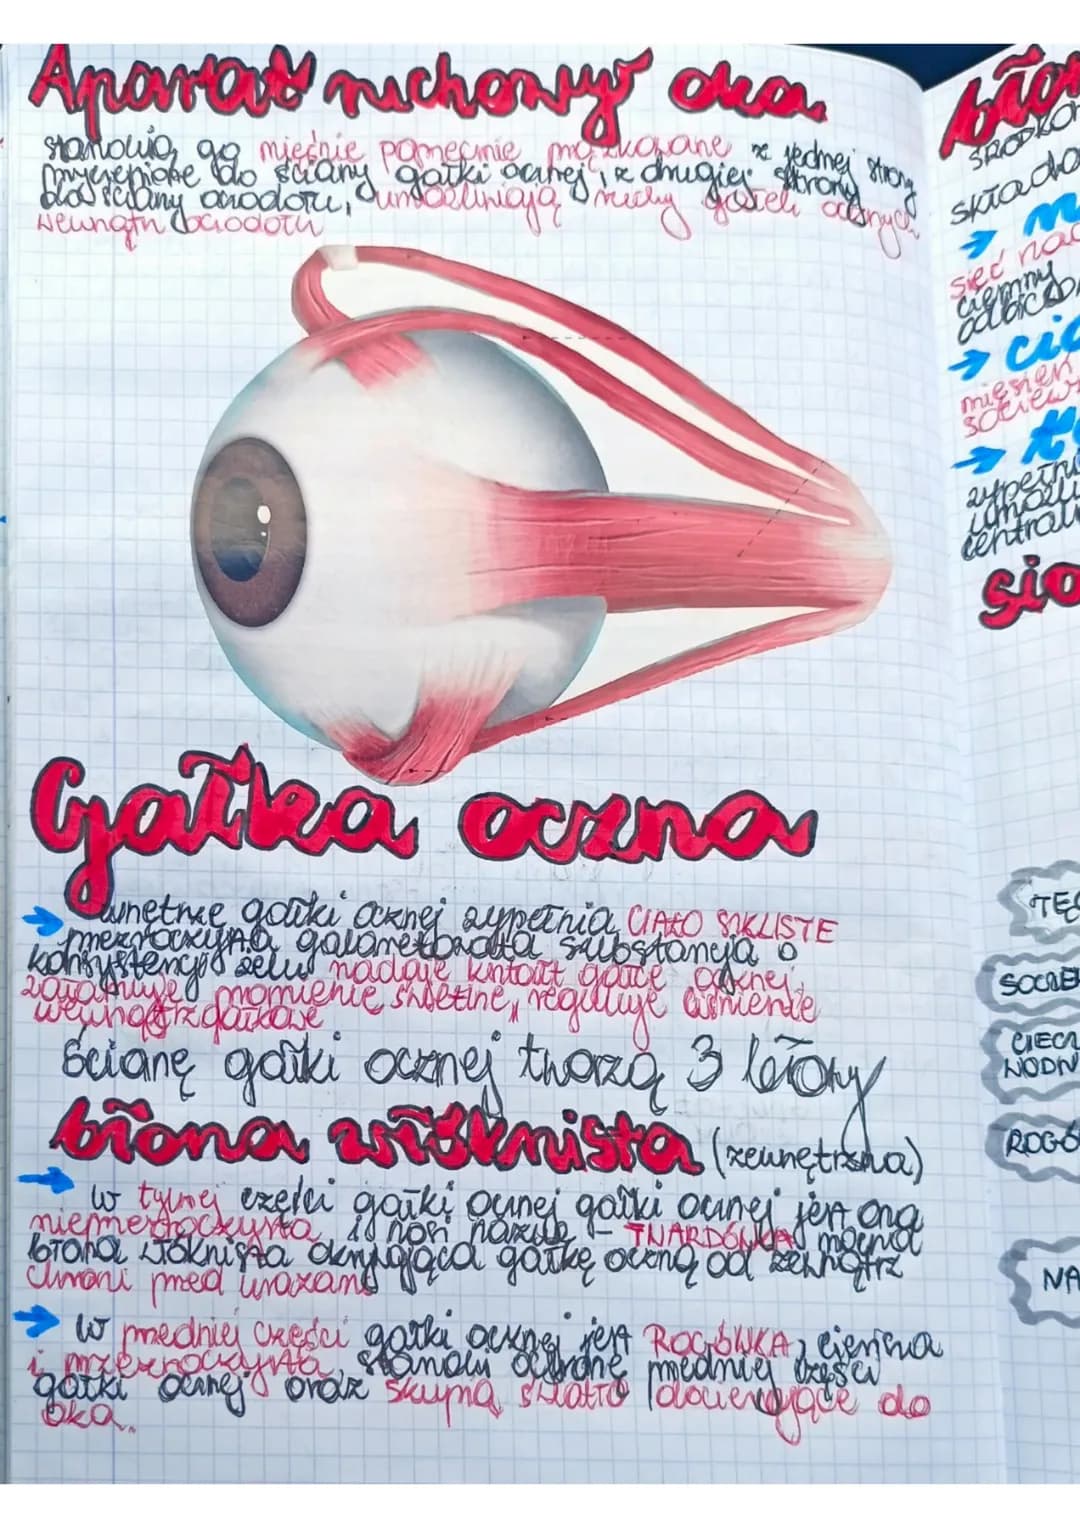 Aparat ruchowy oka
stanowią go mięśnie poprzecznie prążkowane z jednej strony
przyczepione do ściany gałki ocznej, z drugiej strony
do ściany oczodołu, umożliwiają ruchy gałek ocznych
wewnątrz oczodołu
Gałka oczna
→ wnętrze gałki ocznej wypełnia CIAŁO SZKLISTE
przezroczysta galaretowata substancja o
konsystencji żelu nadaje kształt gałce ocznej,
załamuje promienie świetlne, reguluje ciśnienie
wewnątrzgałkowe
Ścianę gałki ocznej tworzą 3 błony
błona włóknista (zewnętrzna)
→ w tylnej części gałki ocznej gałki ocznej jest ona
nieprzezroczysta i nosi nazwę - TWARDÓWKA mocna
błona włóknista okrywająca gałkę oczną od zewnątrz
chroni przed urazami
→ w przedniej części gałki ocznej jest ROGÓWKA, cienka
i przezroczysta, stanowi ochronę przedniej części
gałki ocznej oraz skupia światło docierające do
oka.
składa
→
sieć nac
ciemny
→
mięsień
→
centraln
ROGÓ
NA